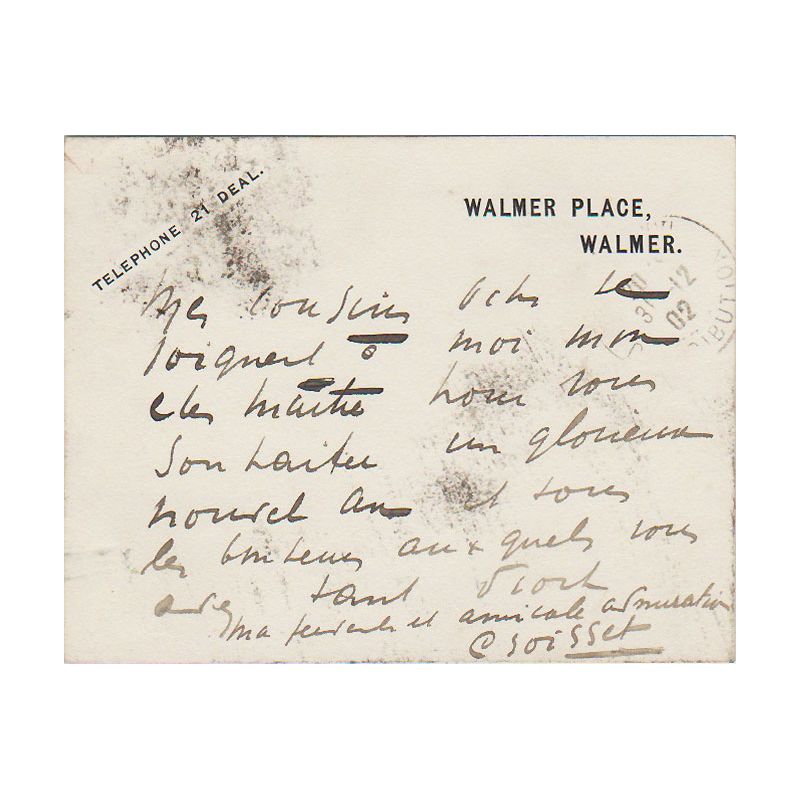 TELEPHONE 21 DEAL.
WALMER PLACE,
WALMER.
31 12
02
IBUTION
Mes cousins Ochs se
joignent à moi mon
cher maître pour vous
souhaiter un glorieux
nouvel an et tous
les bonheurs auxquels vous
avez tant droit
Ma fervente et amicale admiration
Croisset